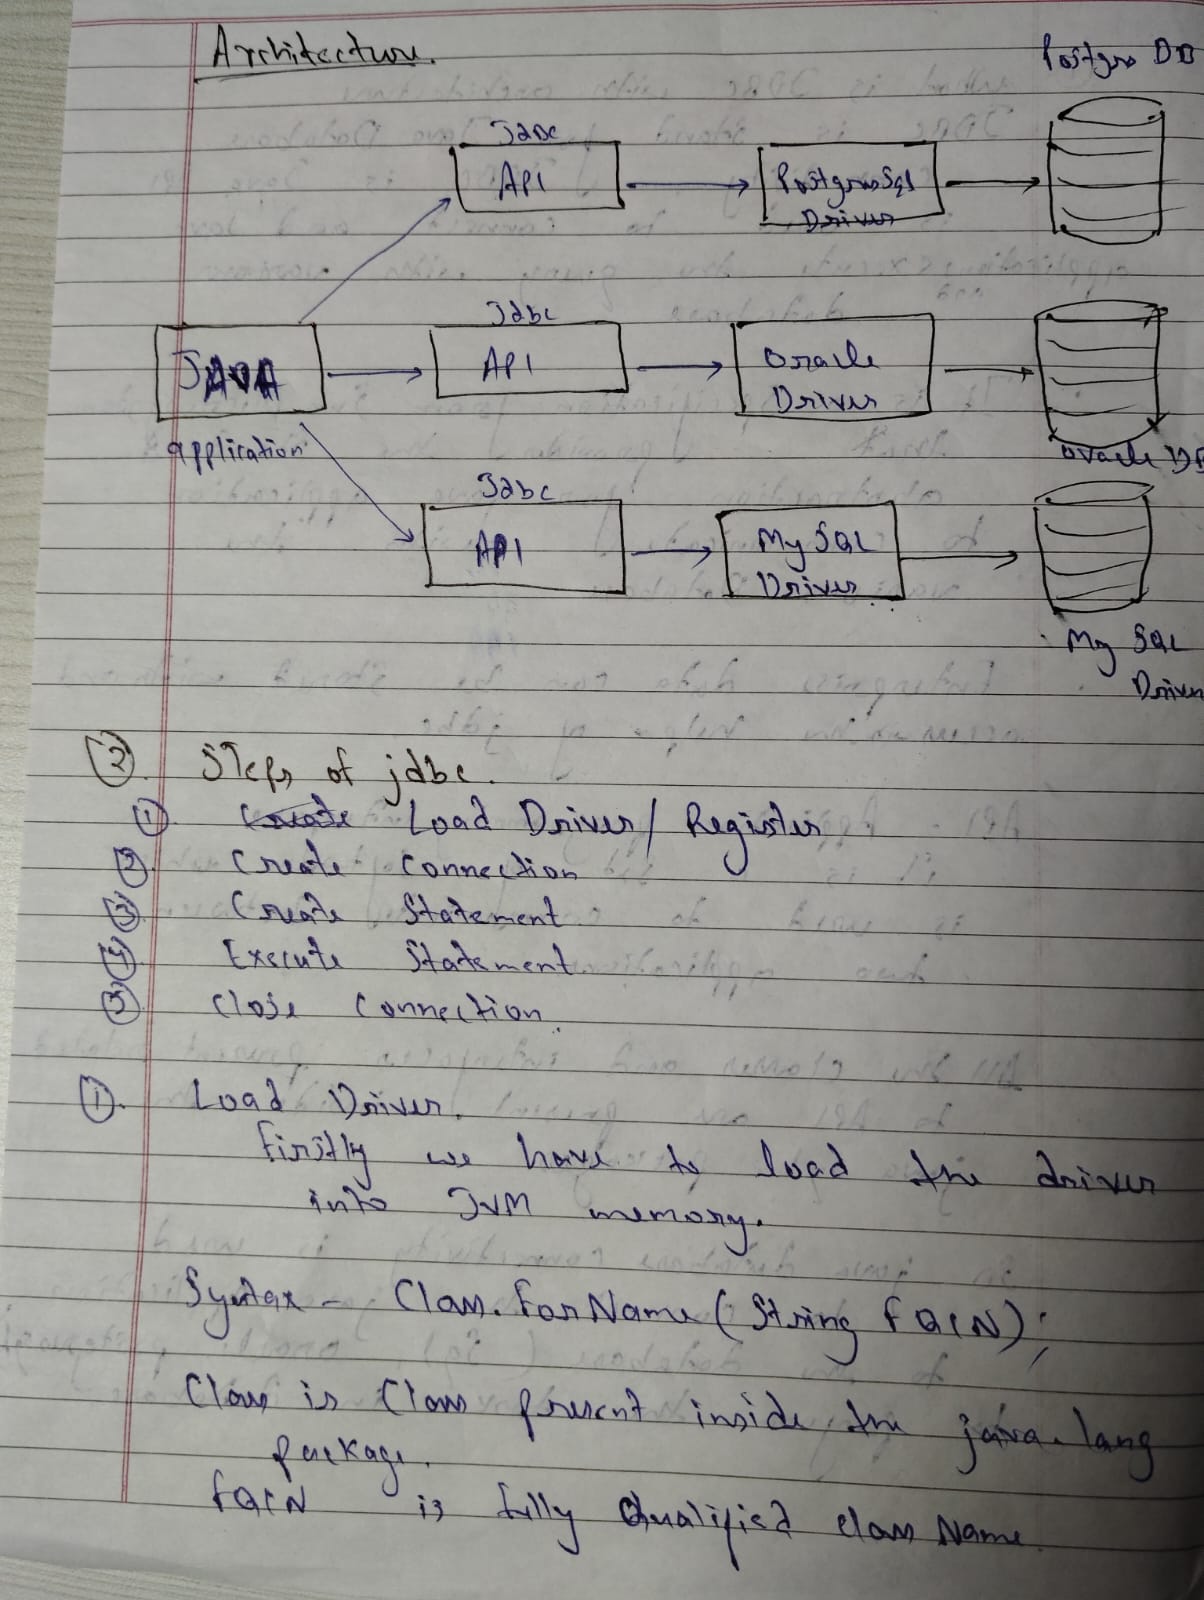 Architecture.
Postgres DB
Jdbc
API
PostgresSql
Driver
Jdbc
API
Oracle
Driver
JAVA
application
Oracle DB
Jdbc
API
My SQL
Driver
My SQL
Driver
② Steps of jdbc.
① Create Load Driver / Register
② Create Connection
③ Create Statement
④ Execute Statement
⑤ Close Connection.
① Load Driver.
Firstly we have to load the driver
into JVM memory.
Syntax - Class.forName(String FQCN);
Class is Class present inside the java.lang
package.
FQCN is fully Qualified class Name